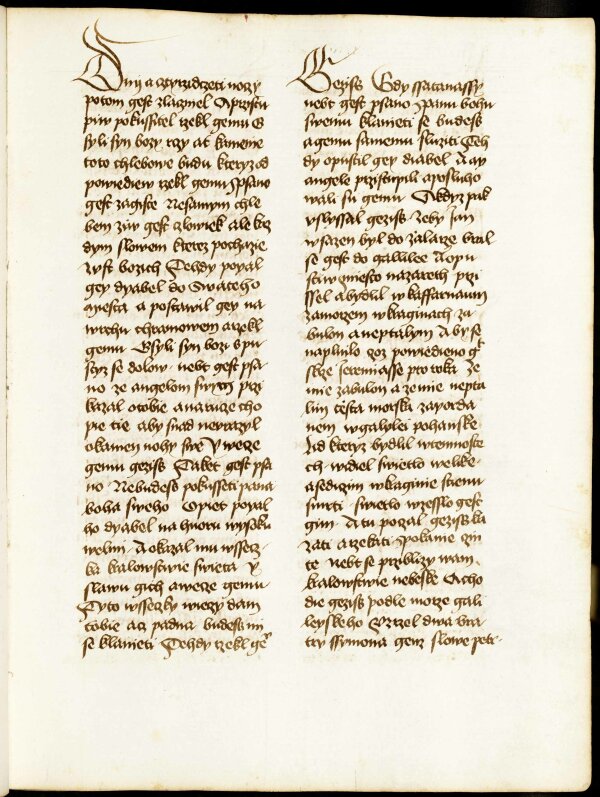 Dny a cztyrzidczeti noczy
potom gest zlacznel A przistu
piw pokussitel rzekl gemu G
syli syn bozy rzcy at kamene
toto chlebowe budu kteryz od
powiediew rzekl gemu Psano
gest zagiste Nesamym chle
bem ziw gest czlowiek ale kaz
dym slowem kterez pochazie
z vst bozich Tehdy poyal
gey dyabel do Swateho
miesta a postawil gey na
wrchu chramowem a rzekl
gemu Gsyli syn bozi spu
styz se dolow nebt gest psa
no ze angelom swym przi
kazal o tobie a na ruze cho
pie tie aby snad neurazyl
o kamen nohy swe Y wecze
gemu gezis Taket gest psa
no Nebudes pokusseti pana
boha sweho Opiet poyal
ho dyabel na huoru wysoku
welmi A okazal mu wssecz
ka kralowstwie swieta y
slawu gich a wecze gemu
Tyto wsseczky wieczy dam
tobie acz padna budes mi
se klanieti Tehdy rzekl ge
Gezis Gdy ssatanassy
nebt gest psano Panu bohu
swemu klanieti se budes
a gemu samemu sluziti Teh
dy opustil gey diabel A ay
angele przistupili a posluho
wali su gemu A kdyz pak
vslyssal gezis zeby Jan
wsazen byl do zalarze bral
se gest do galilee A opu
stiw miesto nazareth przi
ssel a bydlil w kaffarnaum
zamorzem w kraginach za
bulon a neptalym Aby se
naplnilo coz powiedieno gt
skrze jeremiasse proroka Ze
mie zabulon a zemie nepta
lim cesta morska za yorda
nem w galylei pohanske
Lid kteryz bydlil w temnoste
ch widiel swietlo welike
a sedicim w kraginie stienu
smrti swietlo wzesslo gest
gim A tu poczal gezis ka
zati a rzekati Pokanie czin
te nebt se prziblizy wam
kralowstwie nebeske A cho
die gezis podle morze gali
leyskeho Vzrzel dwa bra
try ssymona genz slowe petr